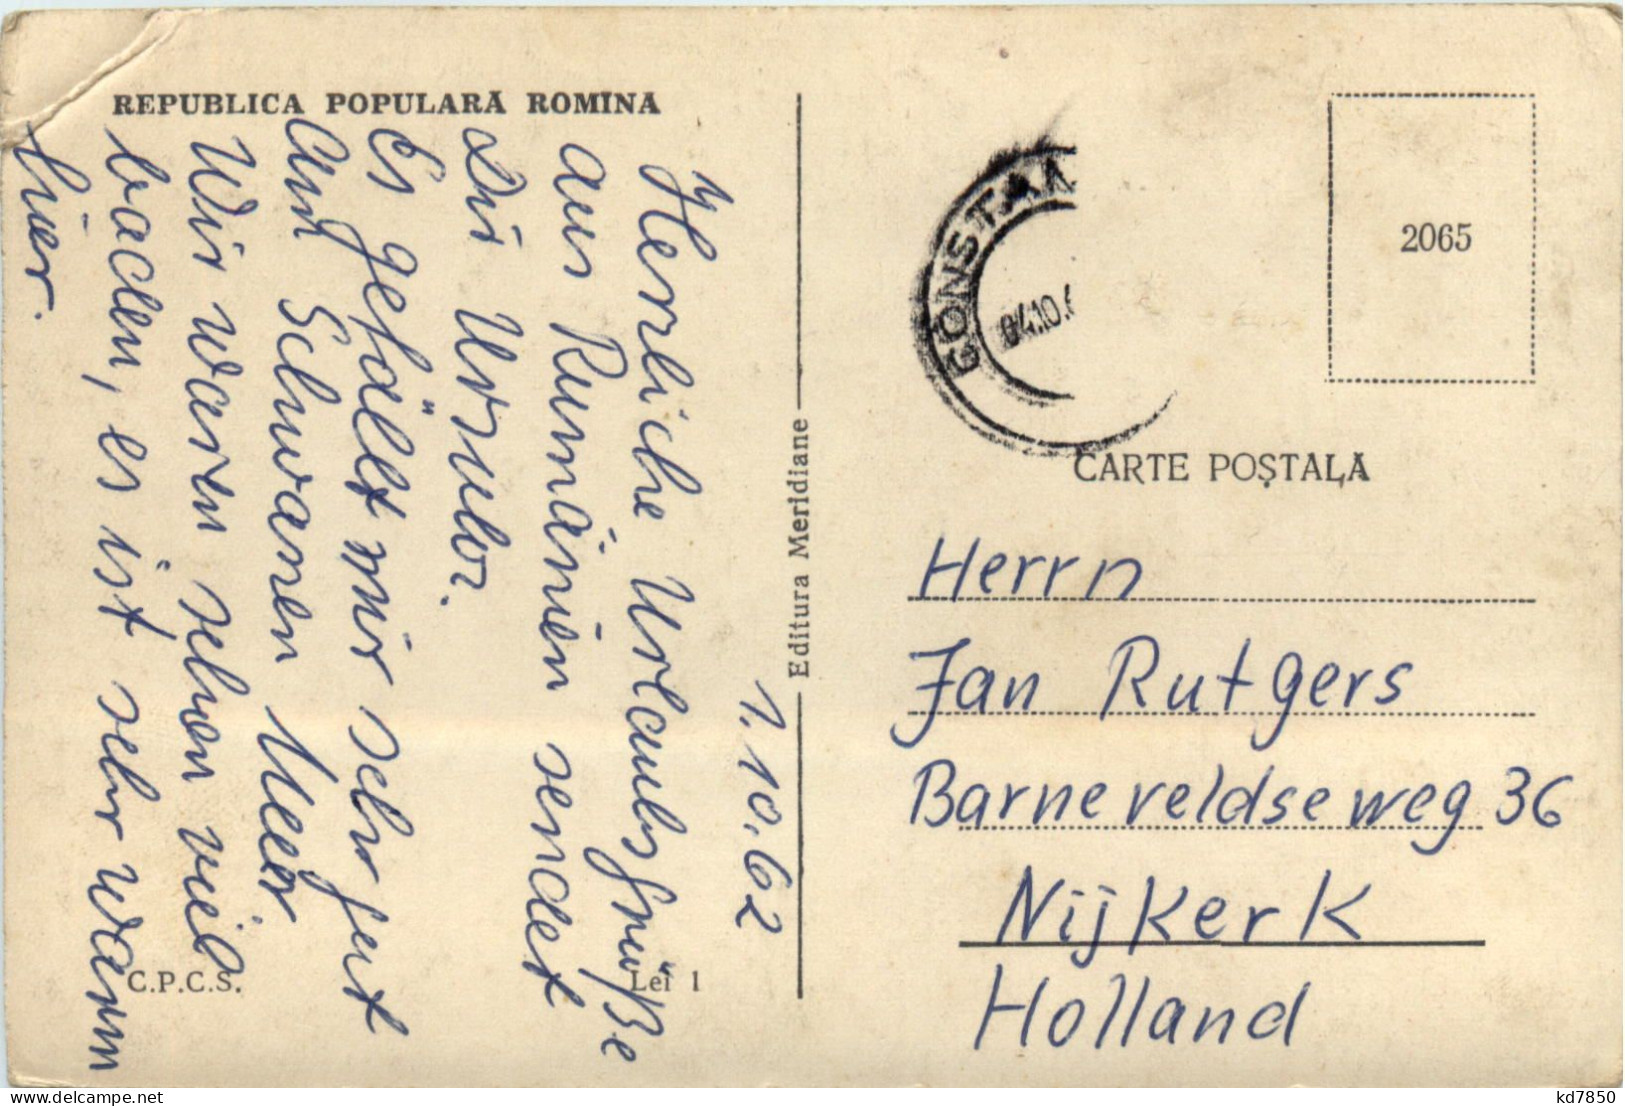 REPUBLICA POPULARĂ ROMÎNA
1.10.62
Herzliche Urlaubsgrüße
aus Rumänien sendet
Dir Ursula.
Es gefällt mir sehr gut
am Schwarzen Meer
Wir waren schon viel
baden, es ist sehr warm
hier.
C.P.C.S.
Lei 1
Editura Meridiane
CONSTAN
04.10.6
2065
CARTE POȘTALĂ
Herrn
Jan Rutgers
Barneveldseweg 36
Nijkerk
Holland
kd7850